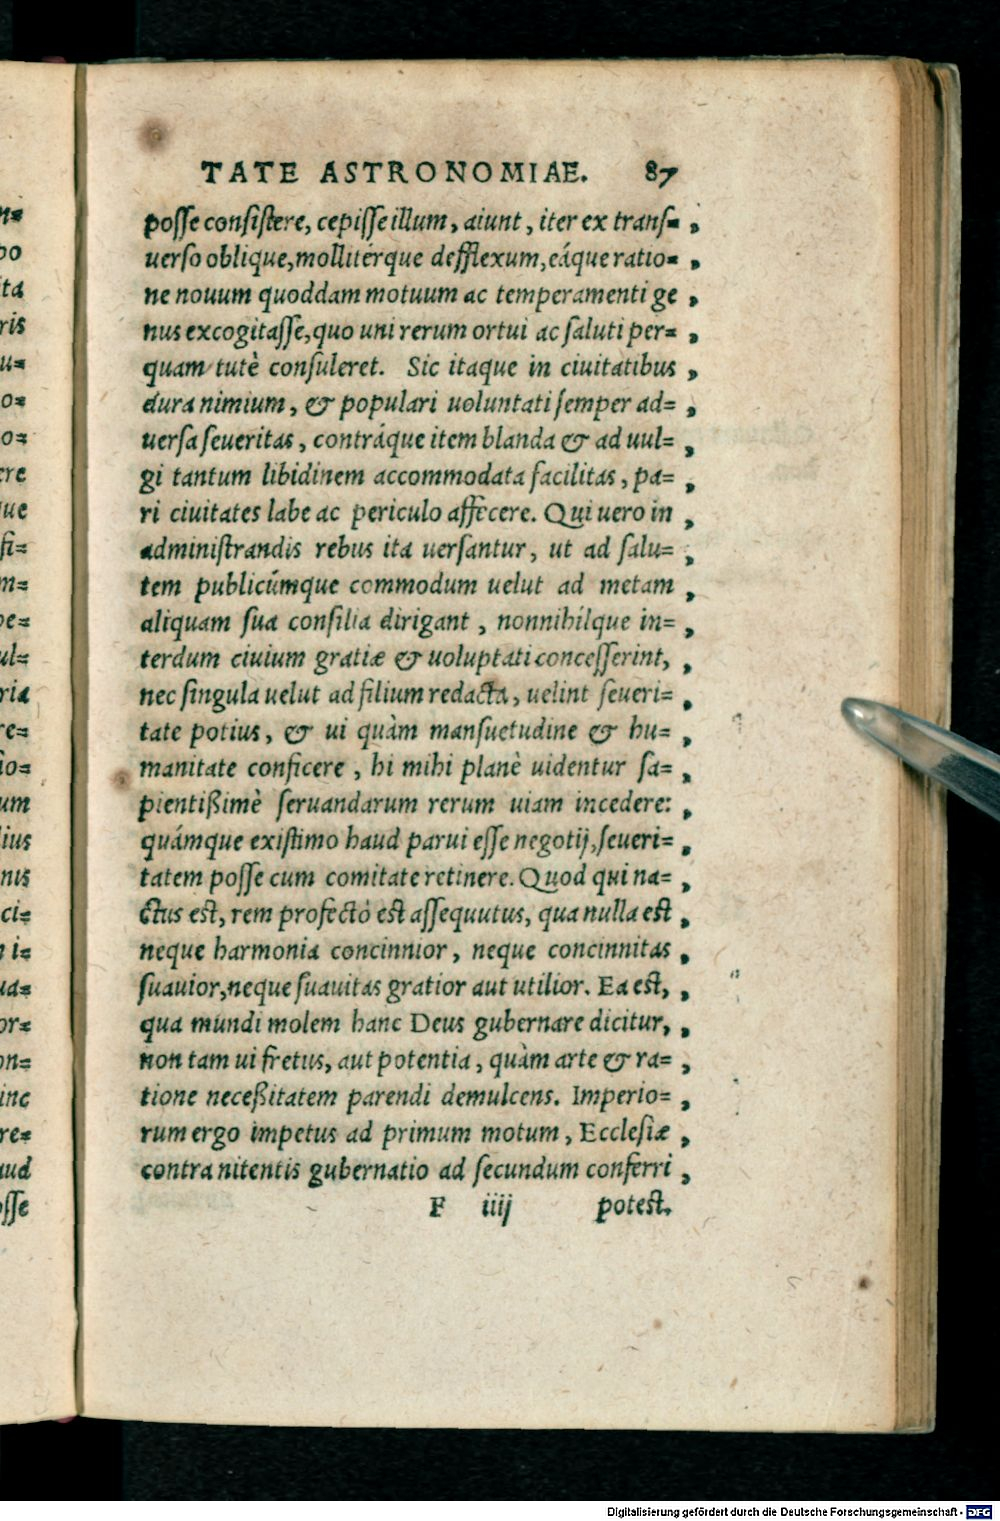 TATE ASTRONOMIAE. 87
posse consistere, cepisse illum, aiunt, iter ex trans= ,
uerso oblique, mollitérque defflexum, eáque ratio= ,
ne nouum quoddam motuum ac temperamenti ge ,
nus excogitasse, quo uni rerum ortui ac saluti per= ,
quam tutè consuleret. Sic itaque in ciuitatibus ,
dura nimium, & populari uoluntati semper ad= ,
uersa seueritas, contráque item blanda & ad uul= ,
gi tantum libidinem accommodata facilitas, pa= ,
ri ciuitates labe ac periculo affecere. Qui uero in ,
administrandis rebus ita uersantur, ut ad salu= ,
tem publicúmque commodum uelut ad metam ,
aliquam sua consilia dirigant, nonnihílque in= ,
terdum ciuium gratiæ & uoluptati concesserint, ,
nec singula uelut ad filium redacta, uelint seueri= ,
tate potius, & ui quàm mansuetudine & hu= ,
manitate conficere, hi mihi planè uidentur sa= ,
pientißimè seruandarum rerum uiam incedere: ,
quámque existimo haud parui esse negotij, seueri= ,
tatem posse cum comitate retinere. Quod qui na= ,
ctus est, rem profectò est assequutus, qua nulla est ,
neque harmonia concinnior, neque concinnitas ,
suauior, neque suauitas gratior aut utilior. Ea est, ,
qua mundi molem hanc Deus gubernare dicitur, ,
non tam ui fretus, aut potentia, quàm arte & ra= ,
tione neceßitatem parendi demulcens. Imperio= ,
rum ergo impetus ad primum motum, Ecclesiæ ,
contra nitentis gubernatio ad secundum conferri ,
F iiij potest.
Digitalisierung gefördert durch die Deutsche Forschungsgemeinschaft - DFG